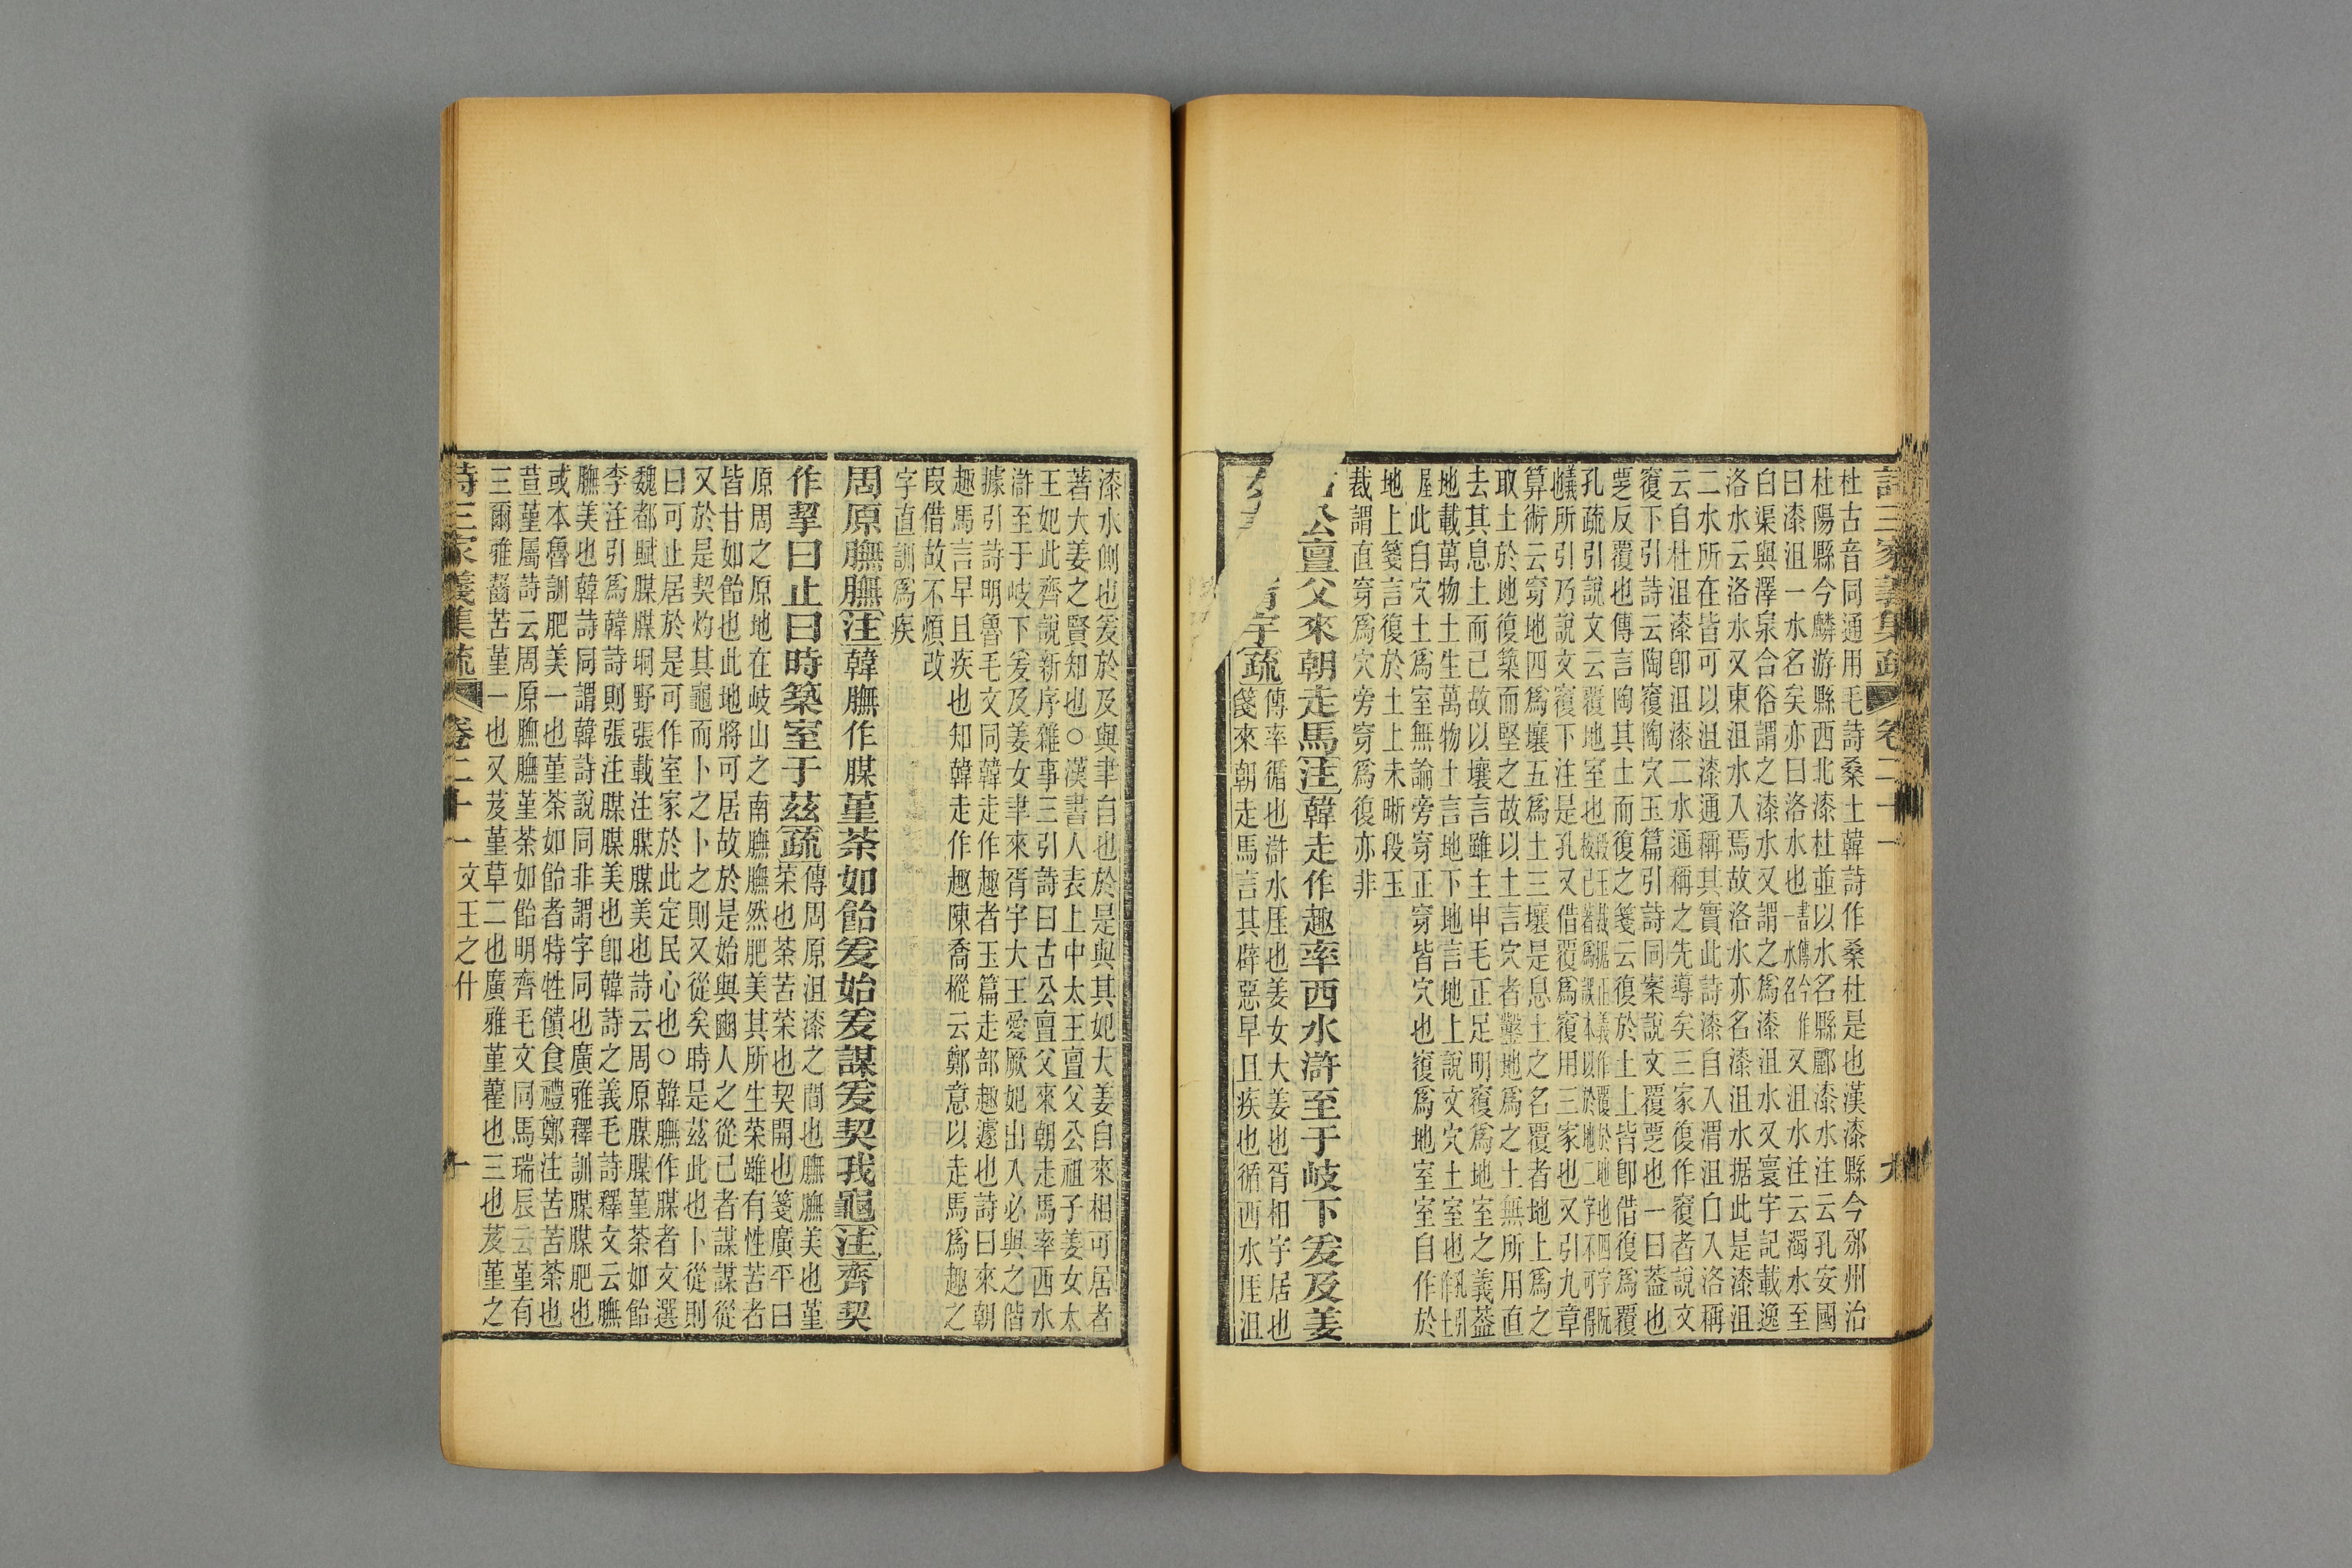 詩三家義集疏 卷二十一 九
杜古音同通用毛詩桑土韓詩作桑杜是也漢漆縣今邠州治
杜陽縣今麟游縣西北漆杜並以水名縣酈漆水注云孔安國
曰漆沮一水名矣亦曰洛水也一書傳今作水名又沮水注云濁水至
白渠與澤泉合俗謂之漆水又謂之為漆沮水又寰宇記載逸
洛水云洛水又東沮水入焉故洛水亦名漆沮水据此是漆沮
二水所在皆可以沮漆通稱其實此詩漆自入渭沮自入洛稱
云自杜沮漆卽沮漆二水通稱之先導矣三家復作寝者說文
寝下引詩云陶寝陶穴玉篇引詩同案說文覆覂也一曰葢也
覂反覆也傳言陶其土而復之箋云復於土上皆卽借復為覆
孔疏引說文云覆地室也
儀所引乃說文寝下注是孔又借覆為寝用三家也又引九章
算術云穿地四為壤五為土三壤是息土之名覆者地上為之
取土於地復築而堅之故以土言穴者鑿地為之土無所用直
去其息土而已故以壤言雖主申毛正足明寝為地室之義葢
地載萬物土生萬物土言地下地言地上說文穴土室也
屋此自穴土為室無論旁穿正穿皆穴也寝為地室室自作於
地上箋言復於土上未晰段玉
裁謂直穿為穴旁穿為復亦非
公亶父來朝走馬注韓走作趣率西水滸至于岐下爰及姜
宇疏傳率循也滸水厓也姜女大姜也胥相宇居也
箋來朝走馬言其辟惡早且疾也循西水厓沮
漆水側也爰於及與聿自也於是與其妃大姜自來相可居者
著大姜之賢知也○漢書人表上中太王亶父公祖子姜女太
王妃此齊說新序雜事三引詩曰古公亶父來朝走馬率西水
滸至于岐下爰及姜女聿來胥宇大王愛厥妃出入必與之偕
據引詩明魯毛文同韓走作趣者玉篇走部趣遽也詩曰來朝
趣馬言早且疾也知韓走作趣陳喬樅云鄭意以走馬為趣之
叚借故不煩改
字直訓為疾
周原膴膴注韓膴作腜堇荼如飴爰始爰謀爰契我龜注齊契
作挈曰止曰時築室于茲疏傳周原沮漆之間也膴膴美也堇
菜也荼苦菜也契開也箋廣平曰
原周之原地在岐山之南膴膴然肥美其所生菜雖有性苦者
皆甘如飴也此地將可居故於是始與豳人之從己者謀謀從
又於是契灼其龜而卜之卜之則又從矣時是茲此也卜從則
曰可止居於是可作室家於此定民心也○韓膴作腜者文選
魏都賦腜腜坰野張載注腜腜美也詩云周原腜腜堇荼如飴
李注引為韓詩則張注腜腜美也卽韓詩之義毛詩釋文云膴
膴美也韓詩同謂韓詩說同非謂字同也廣雅釋訓腜腜肥也
或本魯訓肥美一也堇荼如飴者特牲饋食禮鄭注苦苦荼也
荁堇屬詩云周原膴膴堇荼如飴明齊毛文同馬瑞辰云堇有
三爾雅齧苦堇一也又芨堇草二也廣雅堇藋也三也芨堇之
詩三家義集疏 卷二十一 文王之什 十